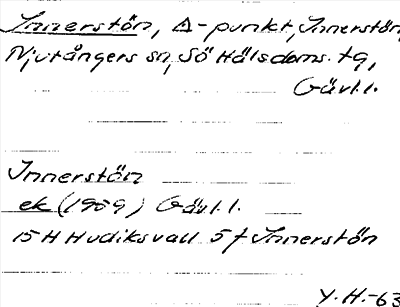 Innerstön, △-punkt, Innerstön,
Njutångers sn, Sö Hälsdoms. tg,
Gävl.l.
Innerstön
ek (1959) Gävl.l.
15H Hudiksvall 5f Innerstön
Y.H.-63